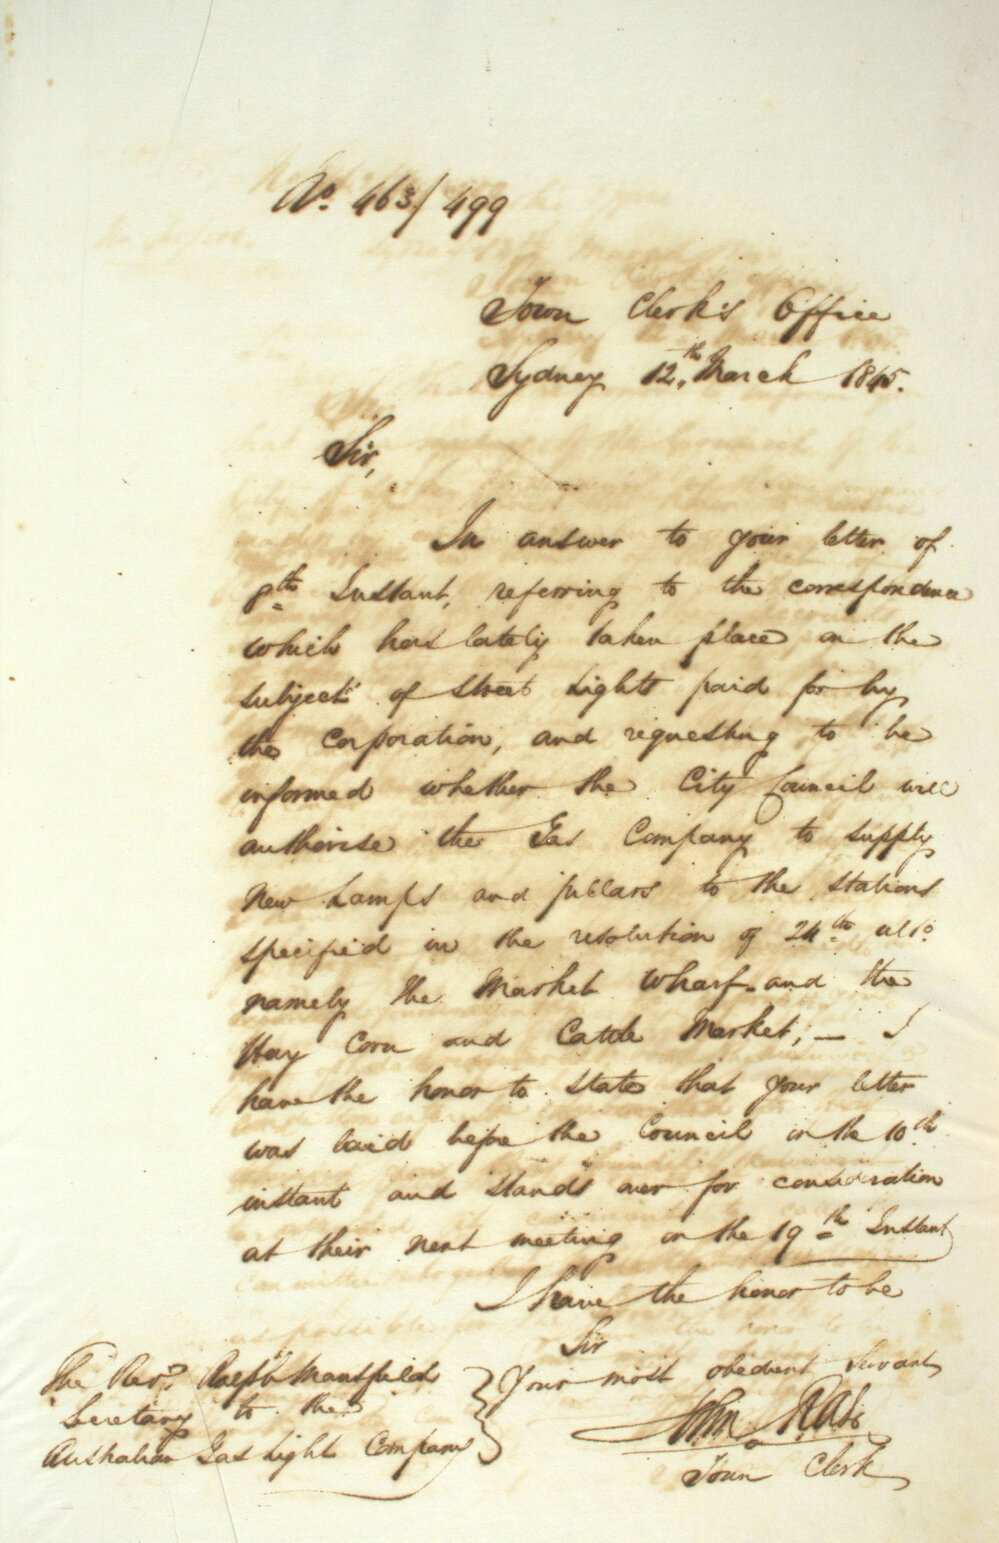 No. 463/499
Town Clerk's Office
Sydney 12th March 1845.
Sir,
In answer to your letter of
8th Instant, referring to the correspondence
which has lately taken place on the
subject of Street Lights paid for by
the Corporation, and requesting to be
informed whether the City Council will
authorise the Gas Company to supply
New Lamps and pillars to the stations
specified in the resolution of 24th ulto.
namely the Market Wharf and the
Hay Corn and Cattle Market; — I
have the honor to state that your letter
was laid before the Council on the 10th
instant and stands over for consideration
at their next meeting on the 19th Instant
I have the honor to be
Sir
Your most obedient Servant
John Rae
Town Clerk
The Revd. Ralph Mansfield
Secretary to the
Australian Gas Light Company